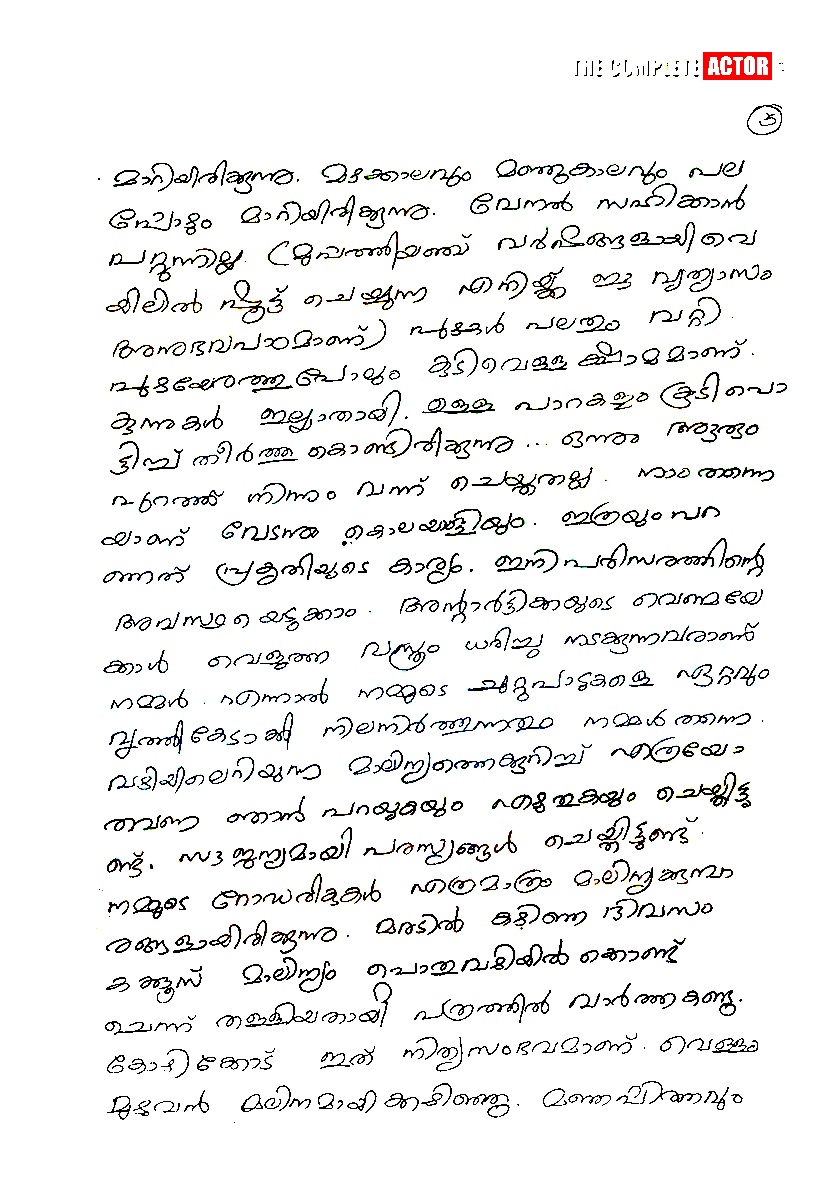 THE COMPLETE ACTOR
3
മാറിയിരിക്കുന്നു. മഴക്കാലവും മഞ്ഞുകാലവും പല
പ്പോഴും മാറിയിരിക്കുന്നു. വേനൽ സഹിക്കാൻ
പറ്റുന്നില്ല. (മുപ്പത്തിയഞ്ച് വർഷങ്ങളായി വെ
യിലിൽ ഷൂട്ട് ചെയ്യുന്ന എനിയ്ക്ക് ഈ വ്യത്യാസം
അനുഭവപാഠമാണ്) പുഴകൾ പലതും വറ്റി.
പുഴയോരത്തുപോലും കുടിവെള്ള ക്ഷാമമാണ്.
കുന്നുകൾ ഇല്ലാതായി. ഉള്ള പാറകളും കൂടി പൊ
ട്ടിച്ച് തീർത്തു കൊണ്ടിരിക്കുന്നു ... ഒന്നും ആരും
പുറത്ത് നിന്നും വന്ന് ചെയ്തതല്ല. നാം തന്നെ
യാണ് വേടനും കൊലയാളിയും. ഇത്രയും പറ
ഞ്ഞത് പ്രകൃതിയുടെ കാര്യം. ഇനി പരിസരത്തിന്റെ
അവസ്ഥയെടുക്കാം. അന്റാർട്ടിക്കയുടെ വെണ്മയേ
ക്കാൾ വെളുത്ത വസ്ത്രം ധരിച്ചു നടക്കുന്നവരാണ്
നമ്മൾ. എന്നാൽ നമ്മുടെ ചുറ്റുപാടുകളെ ഏറ്റവും
വൃത്തികേടാക്കി നിലനിർത്തുന്നതും നമ്മൾ തന്നെ.
വഴിയിലെറിയുന്ന മാലിന്യത്തെക്കുറിച്ച് എത്രയോ
തവണ ഞാൻ പറയുകയും എഴുതുകയും ചെയ്തിട്ടു
ണ്ട്. സൗജന്യമായി പരസ്യങ്ങൾ ചെയ്തിട്ടുണ്ട്.
നമ്മുടെ റോഡരികുകൾ എത്രമാത്രം മാലിന്യക്കൂമ്പാ
രങ്ങളായിരിക്കുന്നു. മരടിൽ കഴിഞ്ഞ ദിവസം
കക്കൂസ് മാലിന്യം പൊതുവഴിയിൽ കൊണ്ട്
ചെന്ന് തള്ളിയതായി പത്രത്തിൽ വാർത്ത കണ്ടു.
കോഴിക്കോട് ഇത് നിത്യസംഭവമാണ്. വെള്ളം
മുഴുവൻ മലിനമായിക്കഴിഞ്ഞു. മഞ്ഞപ്പിത്തവും